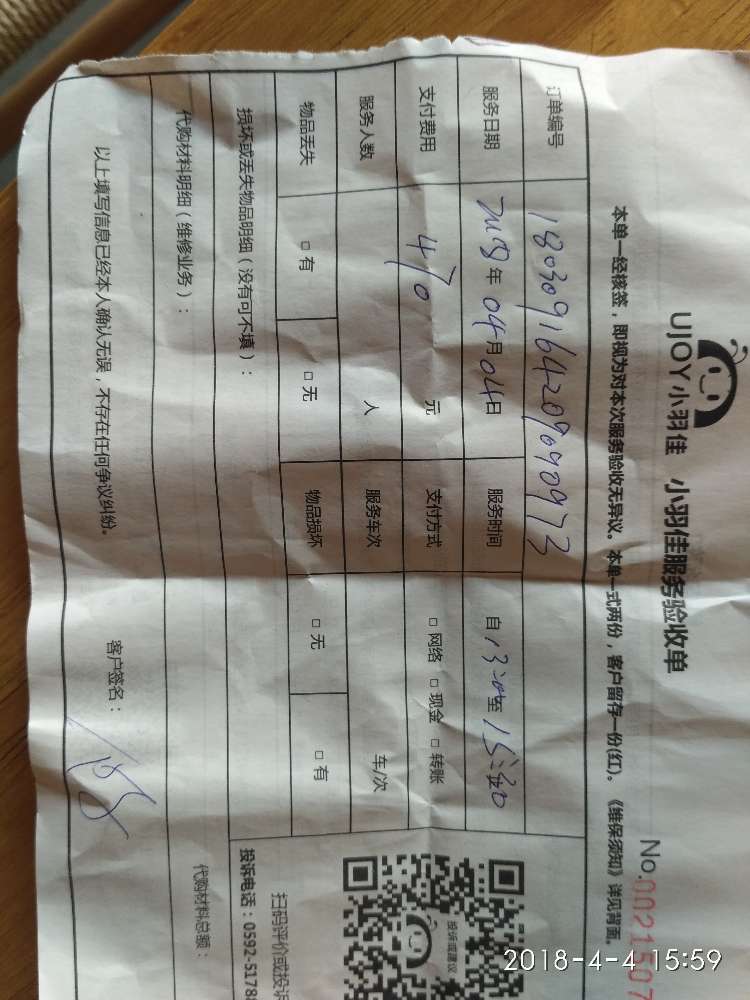 UJOY小羽佳 小羽佳服务验收单
No.0021507
本单一经核签，即视为对本次服务验收无异议。本单一式两份，客户留存一份(红)。《维保须知》详见背面。
订单编号 180309164209090973
服务日期 2018年04月04日 服务时间 自13:00至15:30
支付费用 470元 支付方式 □网络 □现金 □转账
服务人数 人 服务车次 车/次
物品丢失 □有 □无 物品损坏 □无 □有
损坏或丢失物品明细（没有可不填）：
投诉或建议
扫码评价或投诉
投诉电话：0592-5178
代购材料明细（维修业务）： 代购材料总额：
以上填写信息已经本人确认无误，不存在任何争议纠纷。 客户签名：
2018-4-4 15:59